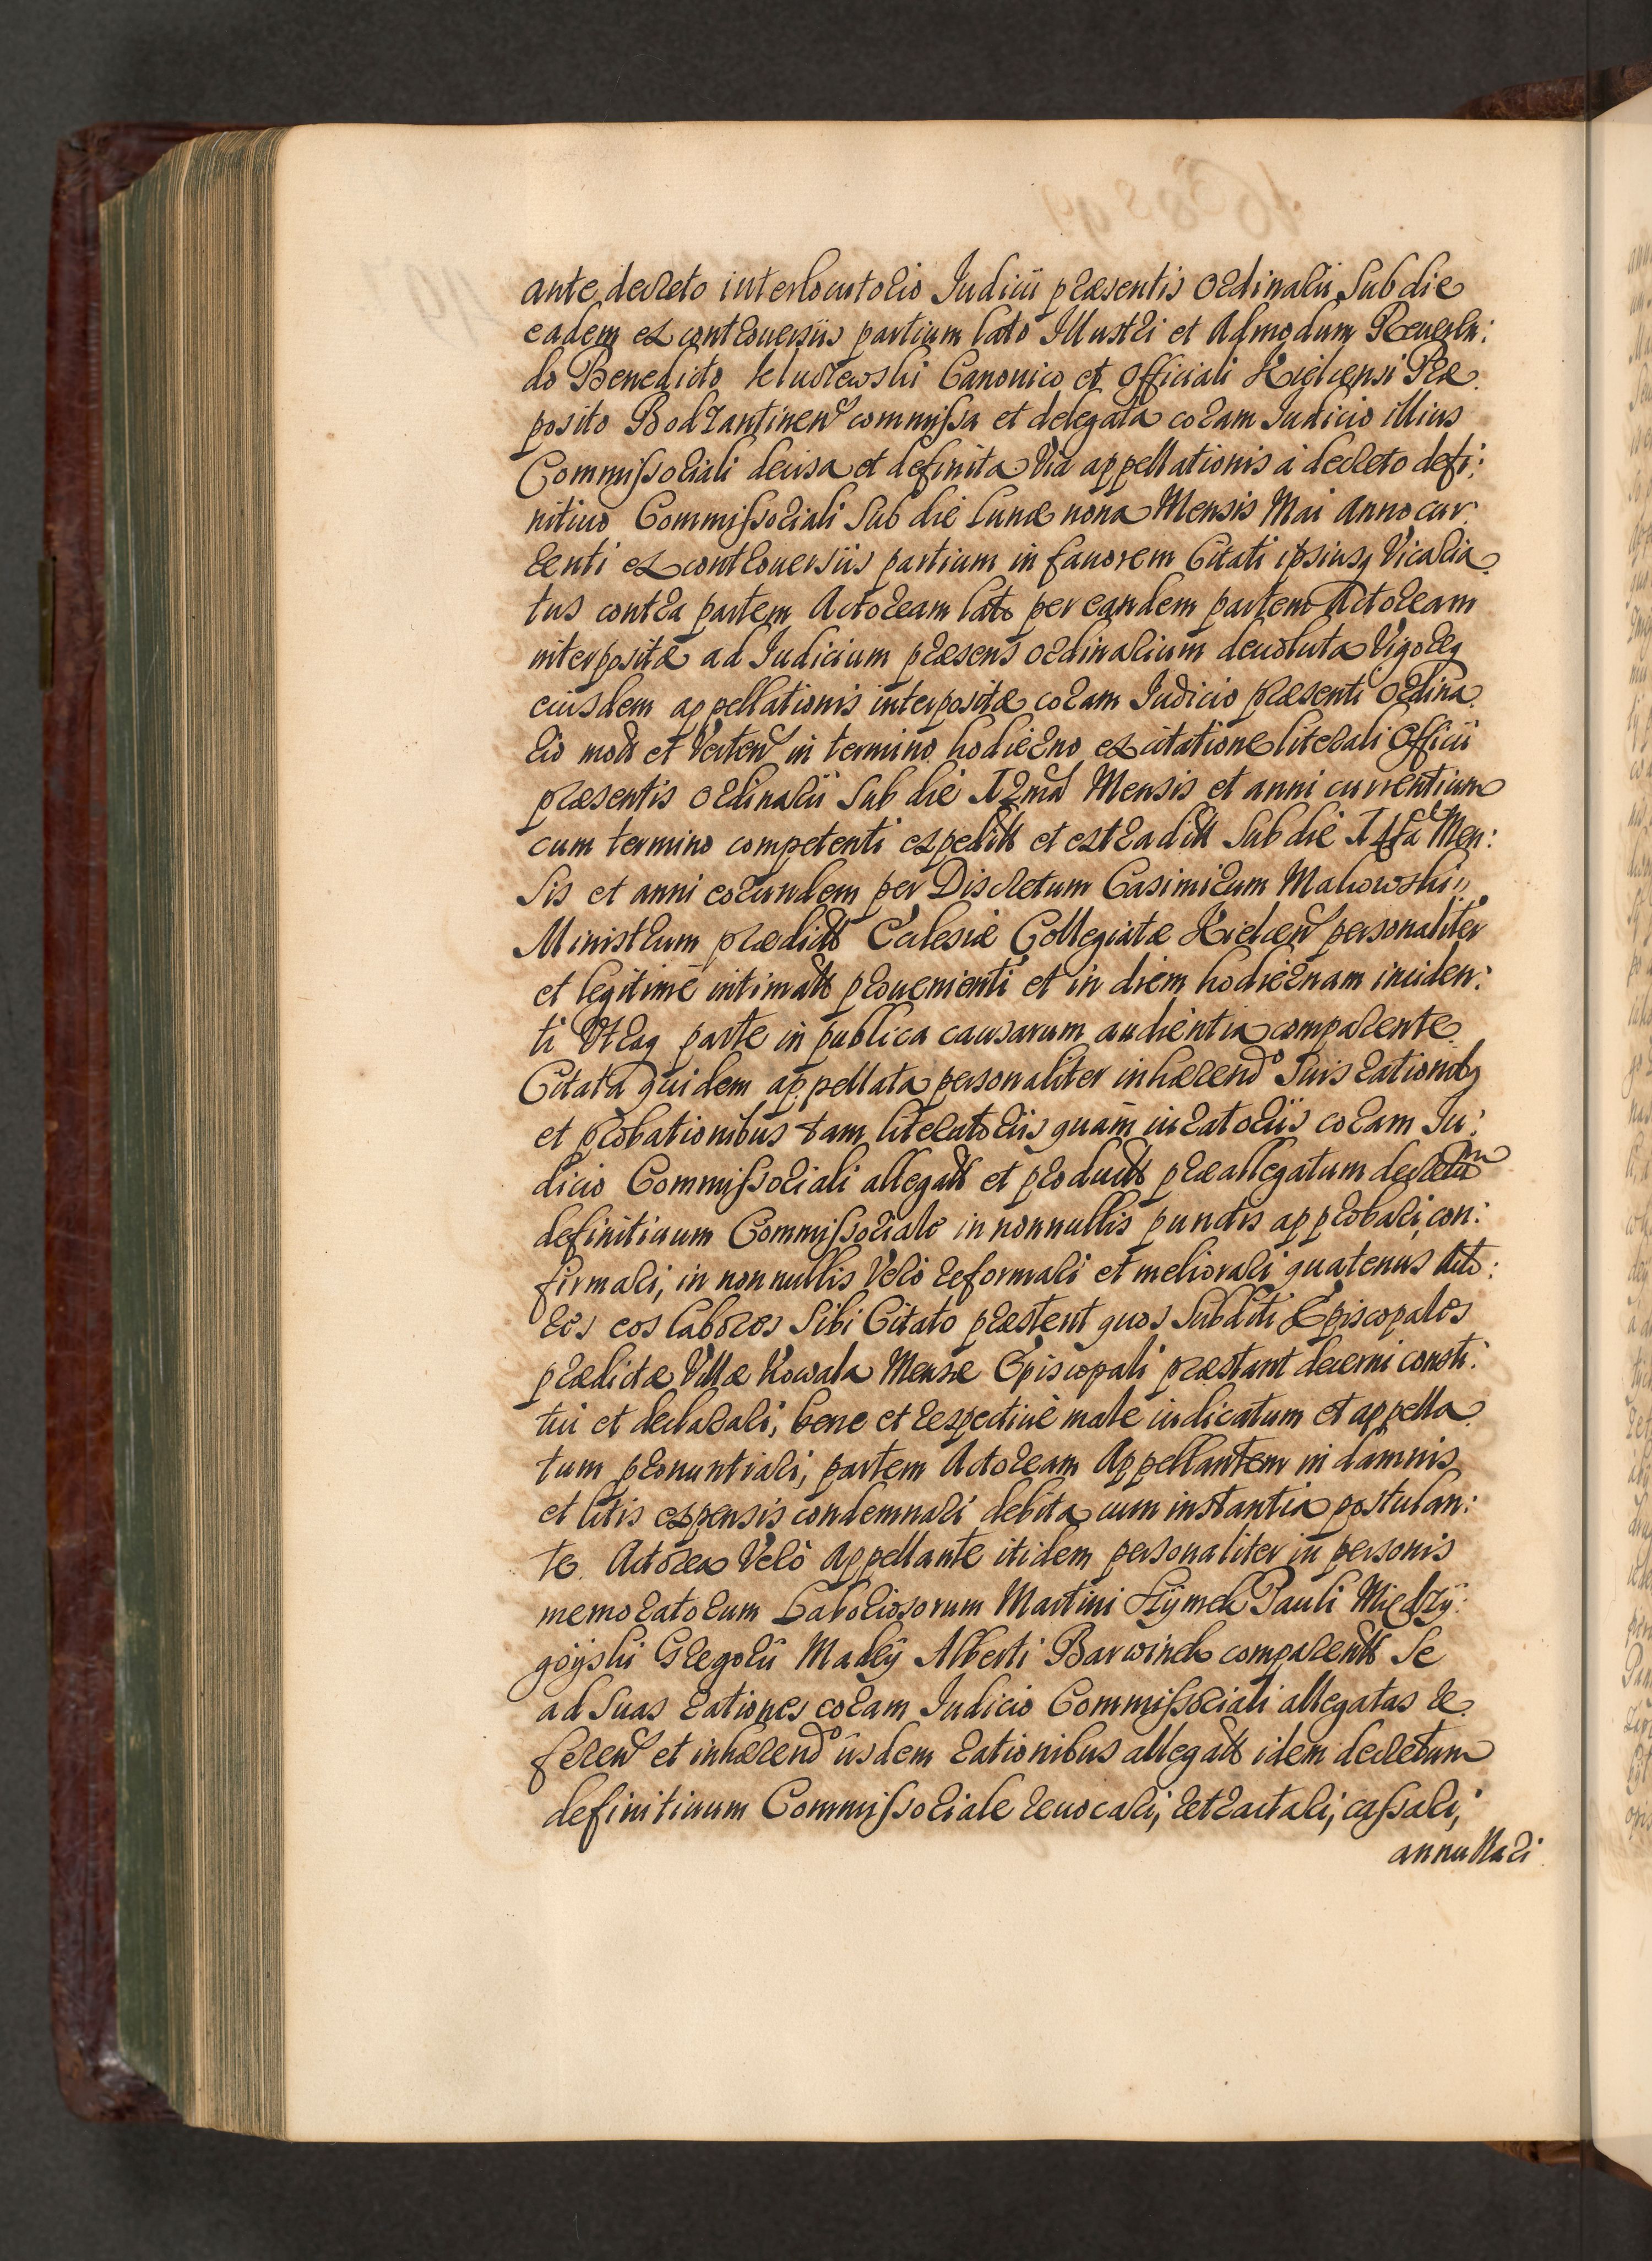 ante decreto interlocutorio Iudicii præsentis Ordinarii Sub die
eadem ex controuersiis partium lato Illustri et Admodum Reueren:
do Benedicto Kludzewski Canonico et Officiali Kielcensi Præ
posito Bodzantinen commissa et delegata coram Iudicio illius
Commissoriali decisa et definita Via appellationis à decreto defi:
nitiuo Commissoriali Sub die Lunæ nona Mensis Mai Anno cur
renti ex controuersiis partium in fauorem Citati ipsiusq Vicaria
tus contra partem Actoream lato per eandem partem Actoream
interpositæ ad Iudicium præsens ordinarium deuoluta Vigoreq
eiusdem appellationis interpositæ coram Iudicio præsenti Ordina
rio mota et Verten in termino hodierno ex citatione literali Officii
præsentis Ordinarii Sub die 12ma Mensis et anni currentium
cum termino competenti expedita et extradita Sub die 14ta Men:
sis et anni eorundem per Discretum Casimirum Makowski
Ministrum prædictæ Ecclesiæ Collegiatæ Kielcen personaliter
et legitimè intimata prouenienti et in diem hodiernam inciden:
ti Utraq parte in publica causarum audientia comparente
Citata quidem appellata personaliter inhærendo Suis rationibq
et probationibus tam literatoriis quàm iuratoriis coram Iu:
dicio Commissoriali allegatis et productis præallegatum decretum
definitiuum Commissoriale in nonnullis punctis approbari, con:
firmari, in nonnullis Verò reformari et meliorari quatenus Acto:
res eos labores Sibi Citato præstent quos Subditi Episcopales
prædictæ Villæ Kowala Mensæ Episcopali præstant decerni consti:
tui et declarari, bene et respectiuè male iudicatum et appella
tum pronuntiari, partem Actoream Appellantem in damnis
et litis expensis condemnari debita cum instantia postulan:
te. Actorea Verò Appellante itidem personaliter in personis
memoratorum Laboriosorum Martini Szymek Pauli Międzÿ:
goÿski Gregorii Madeÿ Alberti Barwinek comparentis Se
ad Suas rationes coram Iudicio Commissoriali allegatas re
feren et inhærendo iisdem rationibus allegatis idem decretum
definitiuum Commissoriale reuocari, retractari, cassari,
annullari